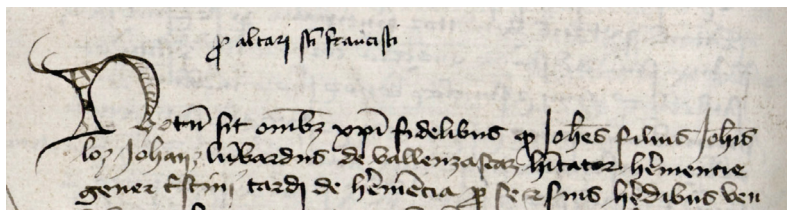 p altari sti francisci
Notu sit omibz xpi fidelibus q Johes filius Johis
Johanz de vallenzascaz hitator hermencie
gener tardi de hermecia p se et suis hedibus ven